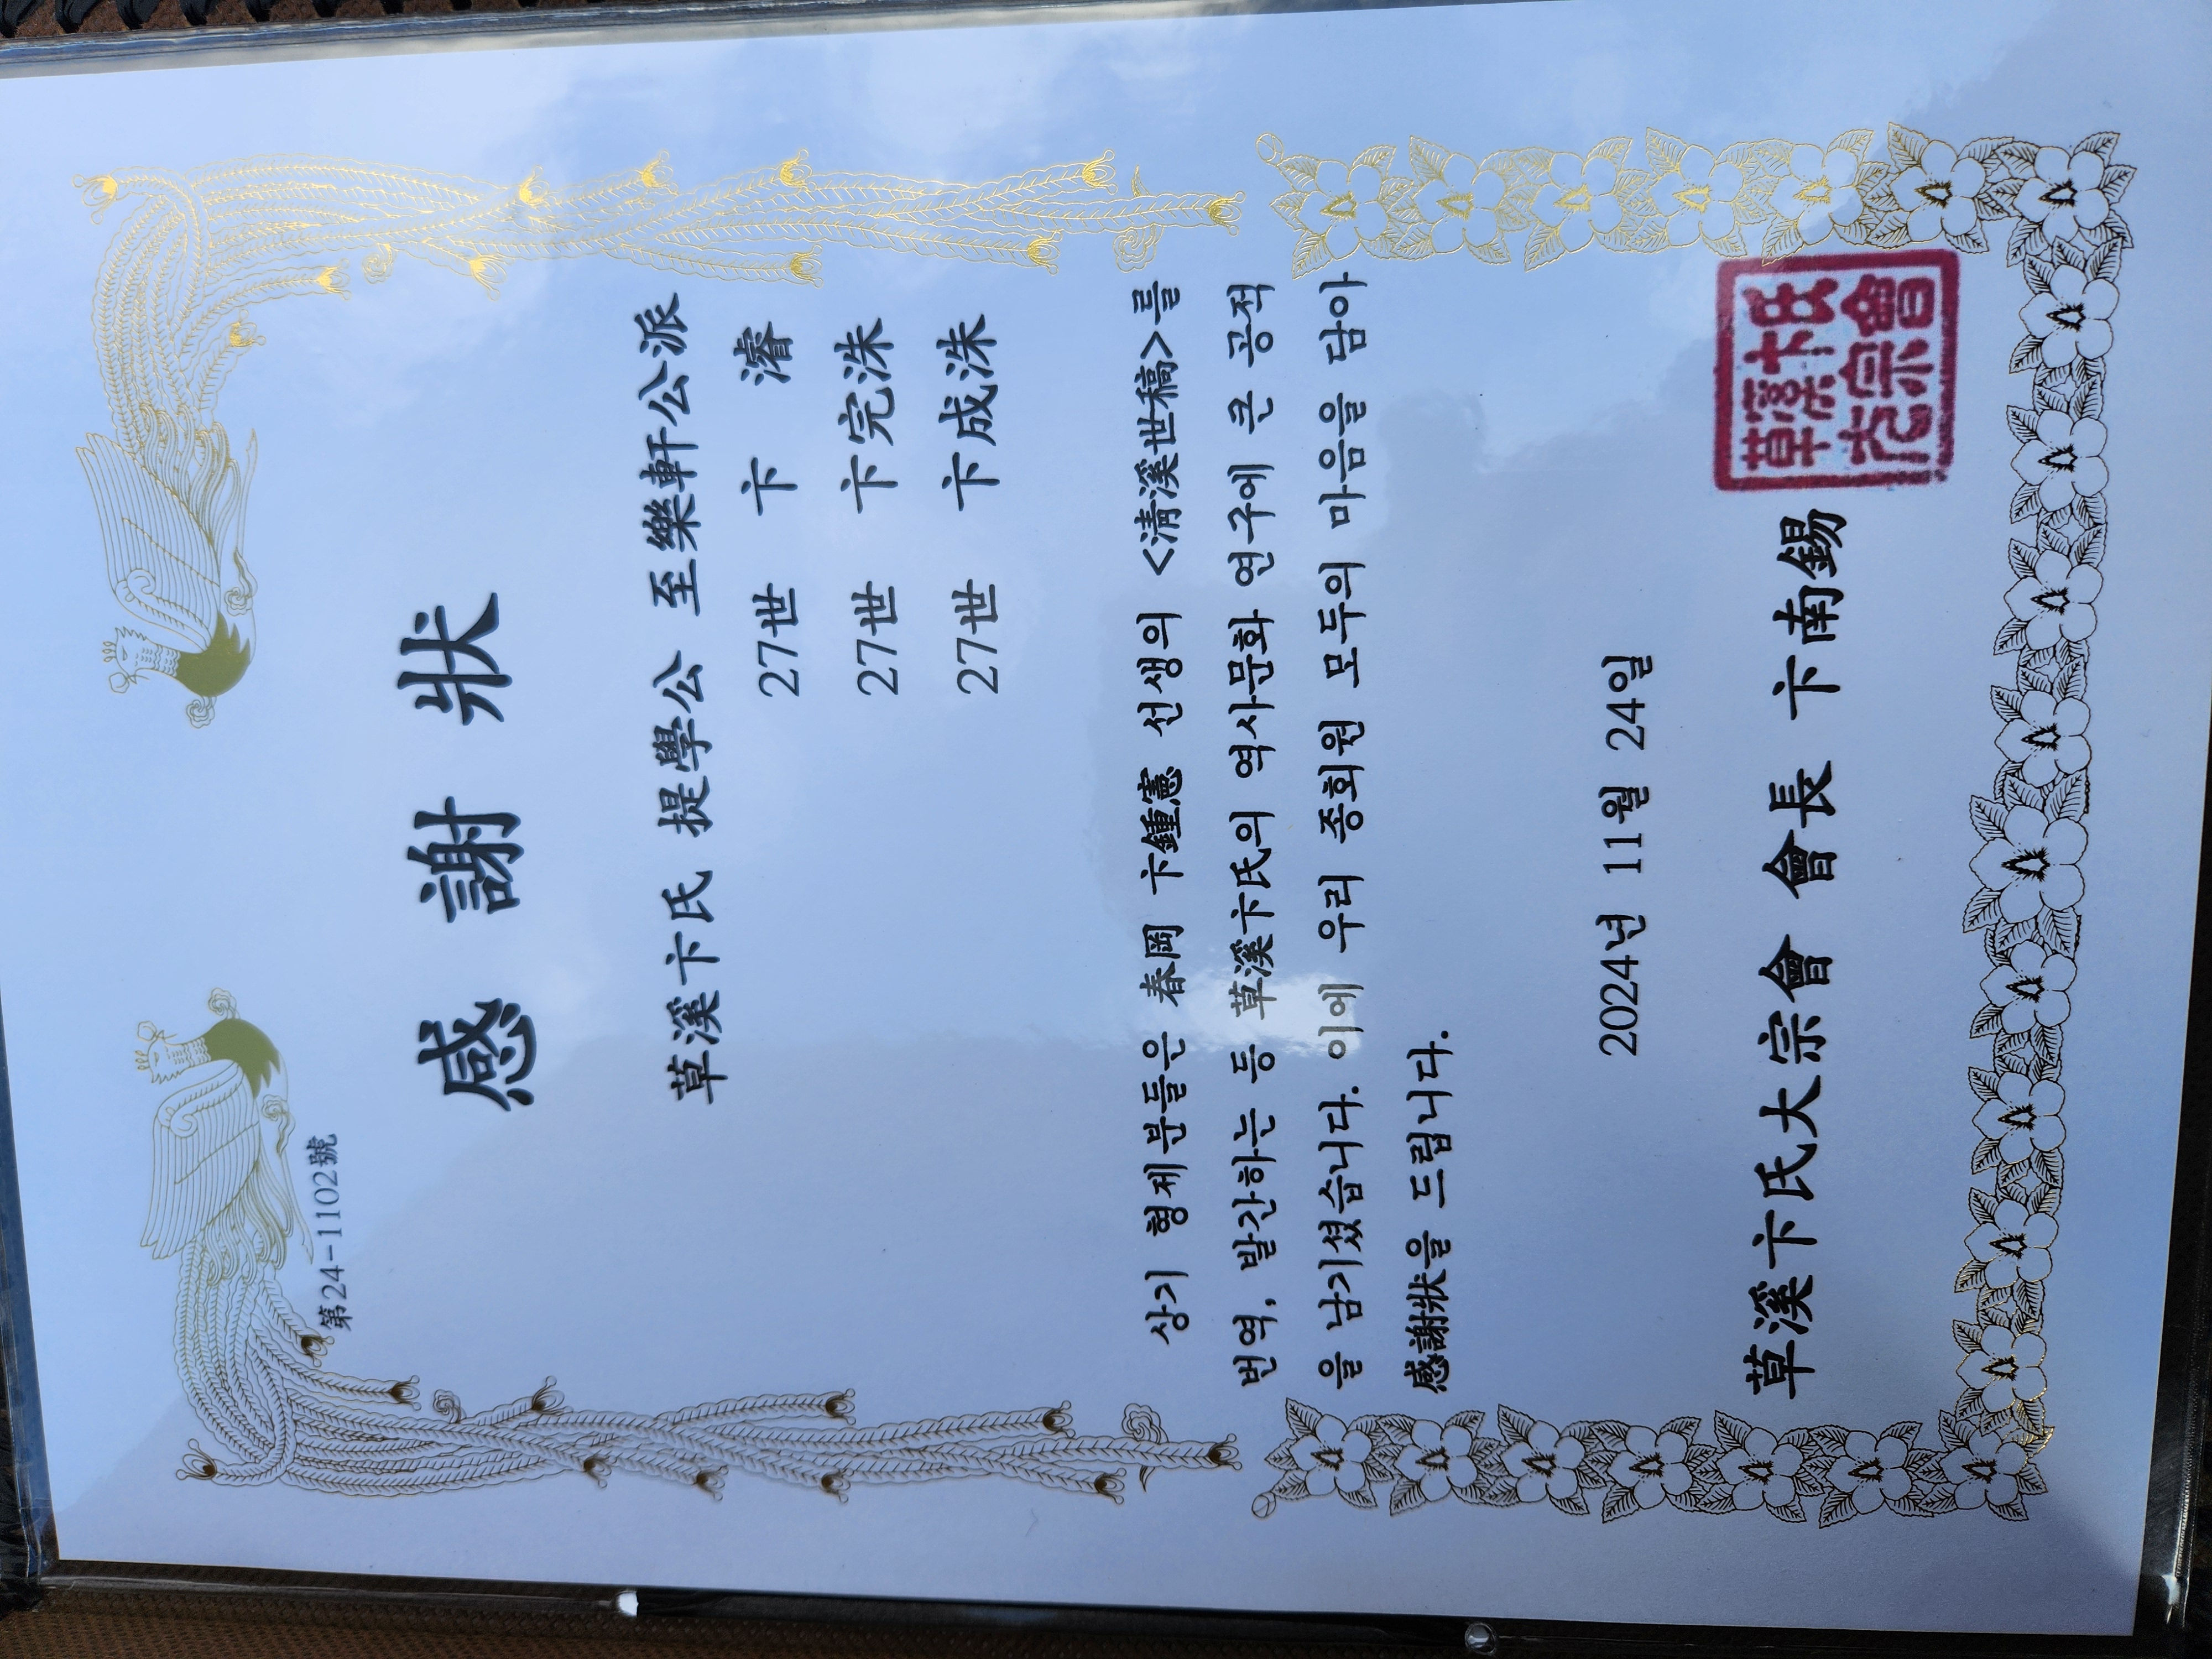 第24-1102號
感 謝 狀
草溪卞氏 提學公 至樂軒公派
27世 卞 濬
27世 卞完洙
27世 卞成洙
상기 형제분들은 春岡 卞鍾憲 선생의 <淸溪世稿>를
번역, 발간하는 등 草溪卞氏의 역사문화 연구에 큰 공적
을 남기셨습니다. 이에 우리 종회원 모두의 마음을 담아
感謝狀을 드립니다.
2024년 11월 24일
草溪卞氏大宗會 會長 卞南錫
草溪卞氏
大宗會